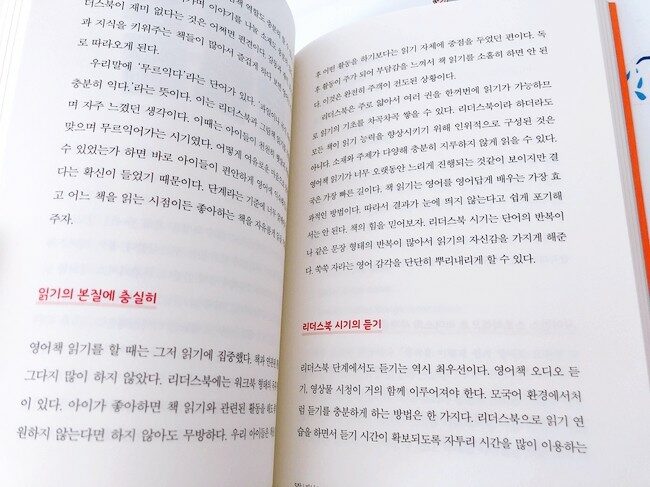 더스북이 재미 없다는 것은 어쩌면 편견이다.
과 지식을 키워주는 책들이 많아서 즐겁게 하다
로 따라오게 된다.
우리말에 ‘무르익다’라는 단어가 있다.
충분히 익다.’라는 뜻이다. 이는 리더스북과 그림책
며 자주 느꼈던 생각이다. 이때는 아이들이 천천히
맞으며 무르익어가는 시기였다. 어떻게 여유로운
수 있었는가 하면 바로 아이들이 편안하게 영어에
다는 확신이 들었기 때문이다. 단계라는 기준에 너무
고 어느 책을 읽는 시점이든 좋아하는 책을 자유롭게
주자.
읽기의 본질에 충실히
영어책 읽기를 할 때는 그저 읽기에 집중했다. 책과
그다지 많이 하지 않았다. 리더스북에는 워크북 형태의
이 있다. 아이가 좋아하면 책 읽기와 관련된 활동을 해도
원하지 않는다면 하지 않아도 무방하다. 우리 아이들은
후 어떤 활동을 하기보다는 읽기 자체에 중점을 두었던 편이다. 독
후 활동이 주가 되어 부담감을 느껴서 책 읽기를 소홀히 하면 안 된
다. 이것은 완전히 주객이 전도된 상황이다.
리더스북은 주로 얇아서 여러 권을 한꺼번에 읽기가 가능하므
로 읽기의 기초를 차곡차곡 쌓을 수 있다. 리더스북이라 하더라도
모든 책이 읽기 능력을 향상시키기 위해 인위적으로 구성된 것은
아니다. 소재와 주제가 다양해 충분히 지루하지 않게 읽을 수 있다.
영어책 읽기가 너무 오랫동안 느리게 진행되는 것같이 보이지만 결
국은 가장 빠른 길이다. 책 읽기는 영어를 영어답게 배우는 가장 효
과적인 방법이다. 따라서 결과가 눈에 띄지 않는다고 쉽게 포기해
서는 안 된다. 책의 힘을 믿어보자. 리더스북 시기는 단어의 반복이
나 같은 문장 형태의 반복이 많아서 읽기의 자신감을 가지게 해준
다. 쑥쑥 자라는 영어 감각을 단단히 뿌리내리게 할 수 있다.
리더스북 시기의 듣기
리더스북 단계에서도 듣기는 역시 최우선이다. 영어책 오디오 듣
기, 영상물 시청이 거의 함께 이루어져야 한다. 모국어 환경에서처
럼 듣기를 충분하게 하는 방법은 한 가지다. 리더스북으로 읽기 연
습을 하면서 듣기 시간이 확보되도록 자투리 시간을 많이 이용하는